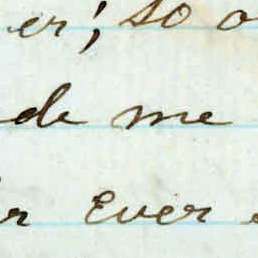 er; so o
de me
r ever